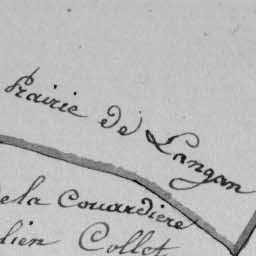 Prairie de Langan
de la Couardiere
lien Collet